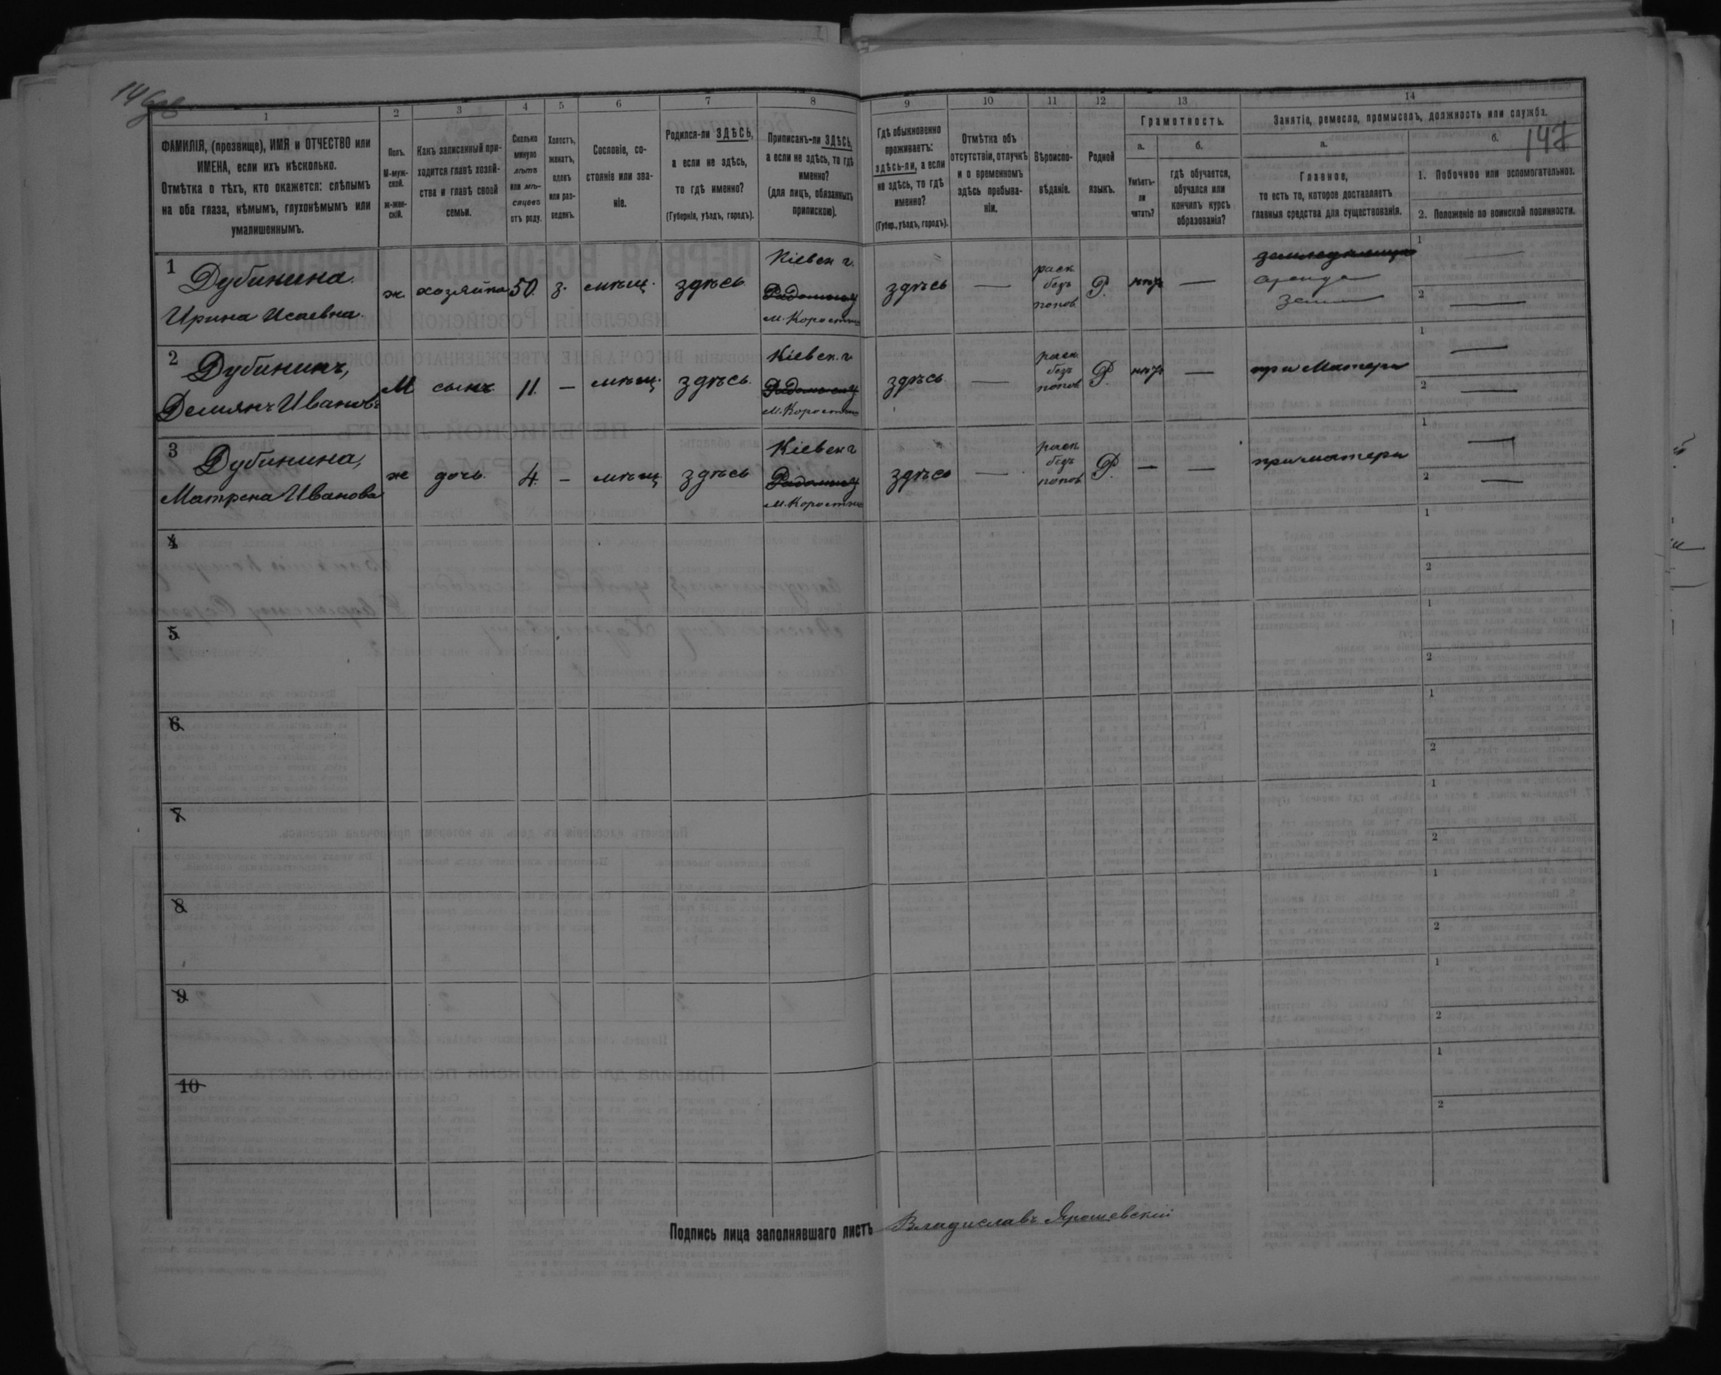 147
1
2
3
4
5
6
7
8
9
10
11
12
13
14
ФАМИЛІЯ, (прозвище), ИМЯ и ОТЧЕСТВО или
ИМЕНА, если ихъ нѣсколько.
Отмѣтка о тѣхъ, кто окажется: слѣпымъ
на оба глаза, нѣмымъ, глухонѣмымъ или
умалишеннымъ.
Полъ.
М-муж-
ской.
ж-жен-
скій.
Какъ записанный при-
ходится главѣ хозяй-
ства и главѣ своей
семьи.
Сколько
минуло
лѣтъ
или мѣ-
сяцевъ
отъ роду.
Холостъ,
женатъ,
вдовъ
или раз-
веденъ.
Сословіе, со-
стояніе или зва-
ніе.
Родился-ли ЗДѢСЬ,
а если не здѣсь,
то гдѣ именно?
(Губернія, уѣздъ, городъ).
Приписанъ-ли ЗДѢСЬ,
а если не здѣсь, то гдѣ
именно?
(для лицъ, обязанныхъ
припиской).
Гдѣ обыкновенно
проживаетъ:
здѣсь-ли, а если
не здѣсь, то гдѣ
именно?
(Губер., уѣздъ, городъ).
Отмѣтка объ
отсутствіи, отлучкѣ
и о временномъ
здѣсь пребыва-
ніи.
Вѣроиспо-
вѣданіе.
Родной
языкъ.
Грамотность.
а.
Умѣетъ-
ли
читать?
б.
гдѣ обучается,
обучался или
кончилъ курсъ
образованія?
Занятіе, ремесло, промыселъ, должность или служба.
а.
Главное,
то есть то, которое доставляетъ
главныя средства для существованія.
б.
1. Побочное или вспомогательное.
2. Положеніе по воинской повинности.
1
Дубинина
Ирина Исаевна
ж. хозяйка 50. з. мѣщ. здѣсь
Кіевск г.
м. Коростыш
здѣсь —
раск
безъ
попов
Р. нѣтъ —
аренда
1 —
2 —
2
Дубининъ,
Демянъ Ивановъ
М сынъ 11. — мѣщ. здѣсь
Кіевск. г
м. Коростыш
здѣсь —
раск
безъ
попов
Р. нѣтъ —
при матери
1 —
2 —
3
Дубинина,
Матрена Иванова
ж дочь. 4. — мѣщ здѣсь
Кіевск г
м. Коростыш
здѣсь —
раск
безъ
попов
Р. — —
при матери
1 —
2 —
4
1
2
5
1
2
6
1
2
7
1
2
8
1
2
9
1
2
10
1
2
Подпись лица заполнявшаго листъ Владиславъ Ярошевскій